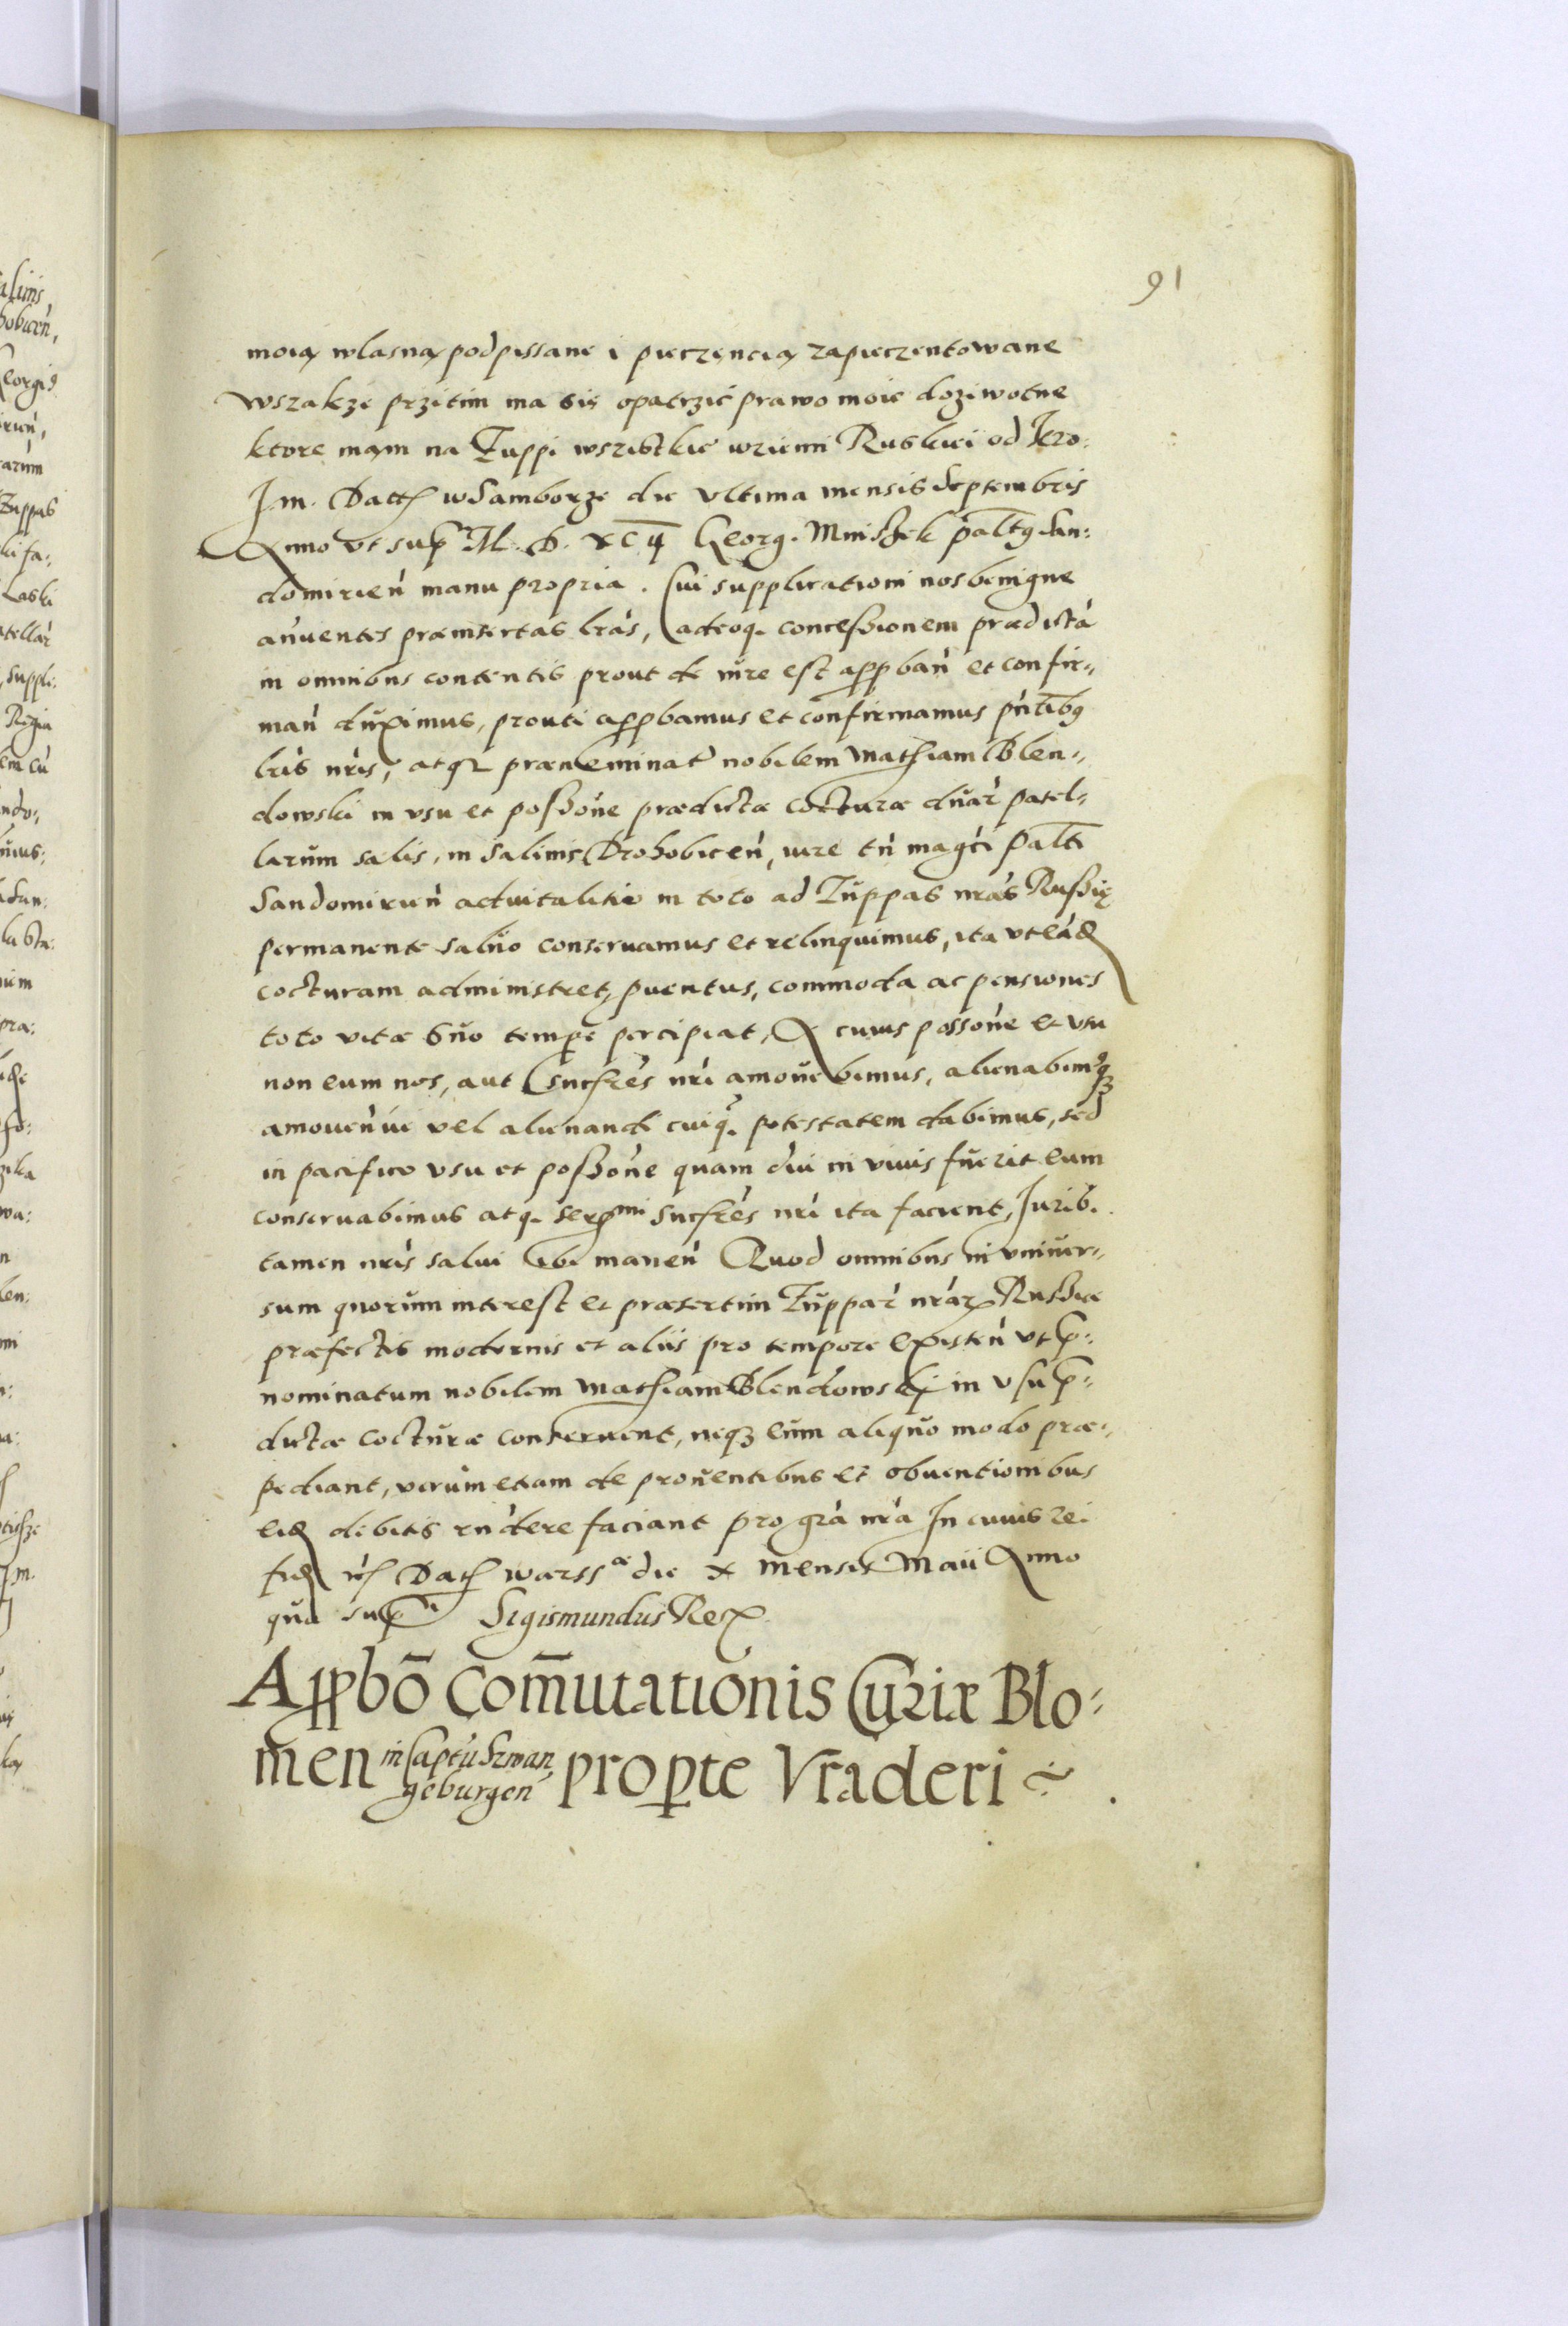 91
moią wlasną podpissane i pieczęncią zapieczentowane
wszakze przitim ma sie opatrzic prawo moie doziwotne
ktore mam na Zuppi wszistkie wziemi Ruskiei od Kro:
Jm. Datt w Samborze die ultima mensis Septembris
Anno ut sup M. D. XCII Georg. Mnishek paltg San:
domirień manu propria. Cui supplicationi nos benigne
añuentes præinsertas lrás, adeoq. concessionem prædictá
in omnibus contentis prout de iure est appbań et confir:
mań duximus, prouti appbamus et confirmamus pntibg
lris nris, atqz prænominat nobilem Mathiam Blen:
dowski in usu et possióne prædictæ cocturæ duar patel:
larum salis, in Salinis Drohobiceń, iure tń magci Palti
Sandomirień advitalitio in toto ad Zuppas nrás Russię
permanente saluo conseruamus et relinquimus, ita ut eád
cocturam administret, puentus, commoda ac pensiones
toto vitæ suo tempe percipiat, A cuius possone et usu
non eum nos, aut succres nri amouebimus, alienabimg
amouenui vel alienandi cuiq. potestatem dabimus, sed
in pacifico usu et possone quam diu in viuis fuerit eum
conseruabimus atq. Sermi succres nri ita facient, Jurib.
tamen nris salui ibi maneń Quod omnibus in uniuer:
sum quorum interest et præsertim Zuppar nrar Russiæ
præfectis modernis et aliis pro tempore existeń ut p:
nominatum nobilem Mathiam Blendowski in usu p:
dictæ cocturæ conseruent, neqz eum aliquo modo præ:
pediant, verum etiam de prouentibus et obuentionibus
eid debitis rńdere faciant pro grá nrá In cuius rei
fid Dat Warssæ die X mensis Maii Anno
quo sup Sigismundus Rex
Appbō Com̄utationis Curiæ Blo:
men in Captu Szwan
geburgeń pro pte Vraderi